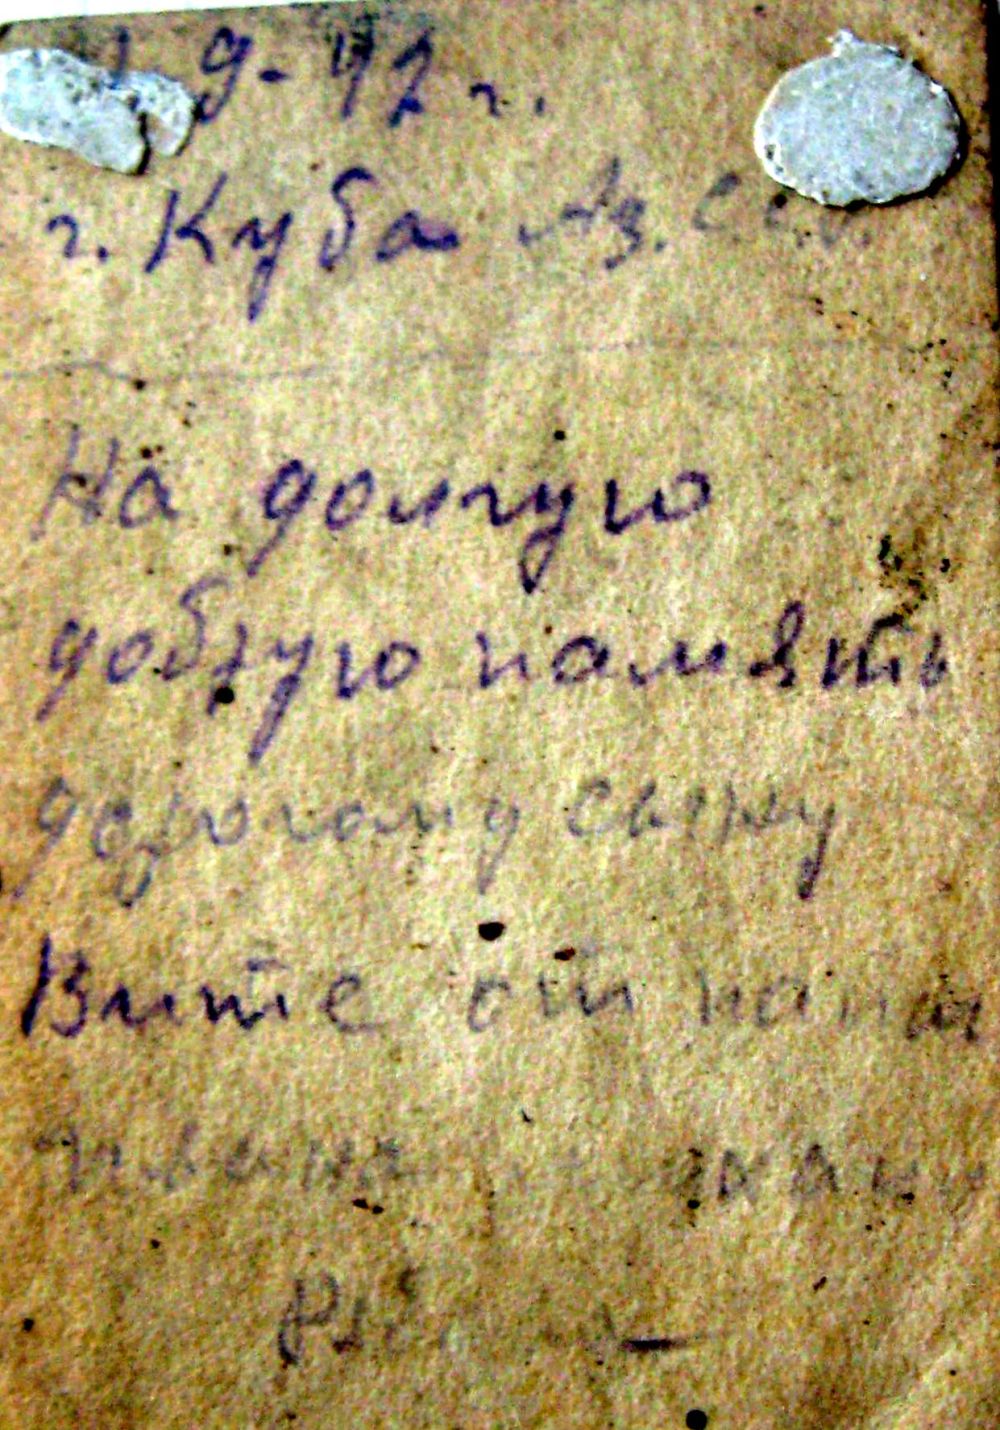 9-42 г.
г. Куба Аз. ССР.
На долгую
добрую память
дорогому сыну
Вите от папы